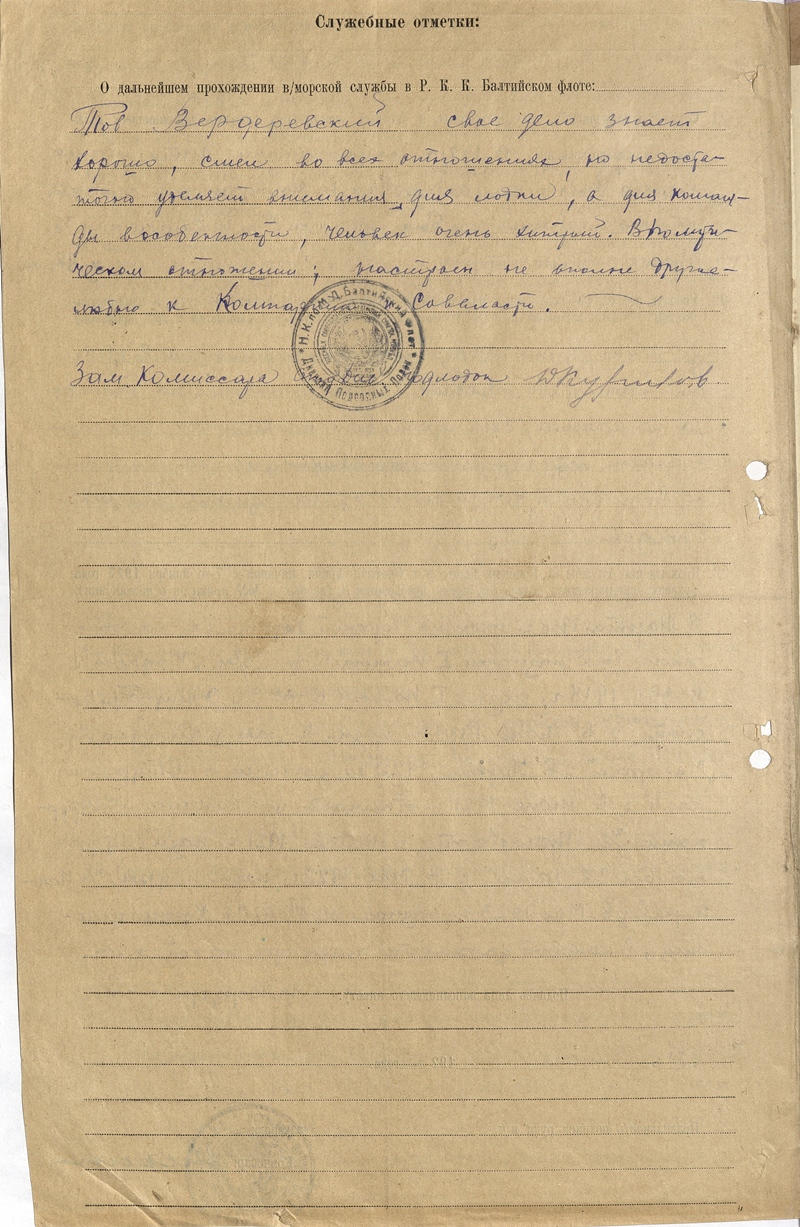 Служебные отметки:
О дальнейшем прохождении в/морской службы в Р. К. К. Балтийском флоте:
Тов Вердеревский свое дело знает
хорошо, смел во всех отношениях, но недоста-
точно уделяет внимания для лодки, а для коман-
ды вособенности, человек очень хитрый. Вполити-
ческом отношении, настроен не вполне друже-
любно к Компартии Соввласти.
Зам Комиссара подлодок
Н.К. по М.Д. Балтийский флот
Дивизия Подводных Лодок